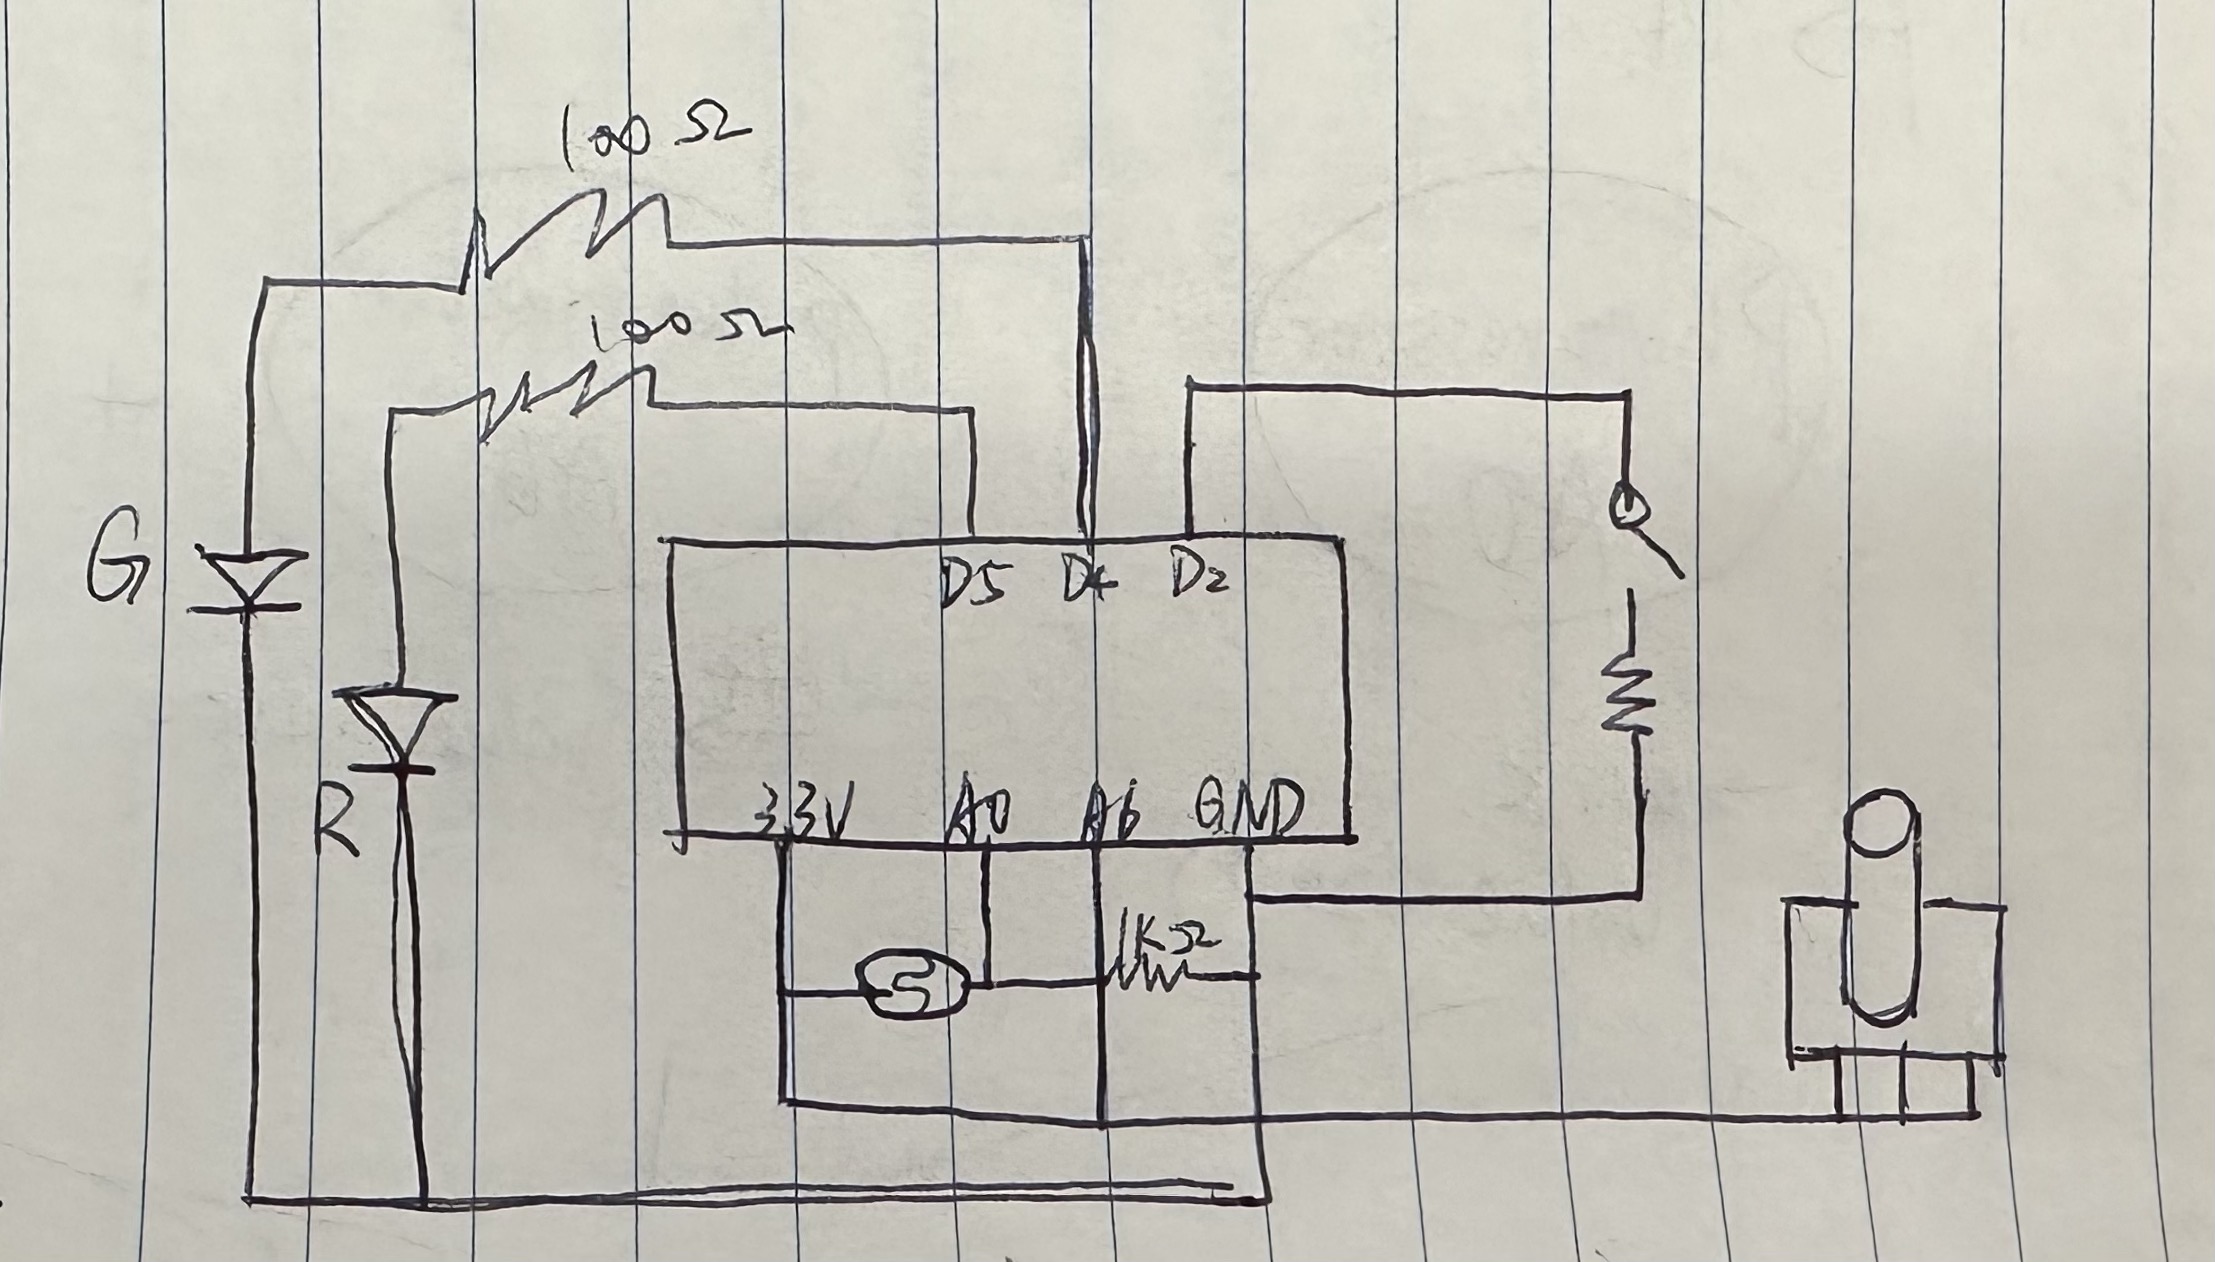 100 Ω
100 Ω
G
D5 D4 D2
R
3.3V A0 A6 GND
1KΩ
S